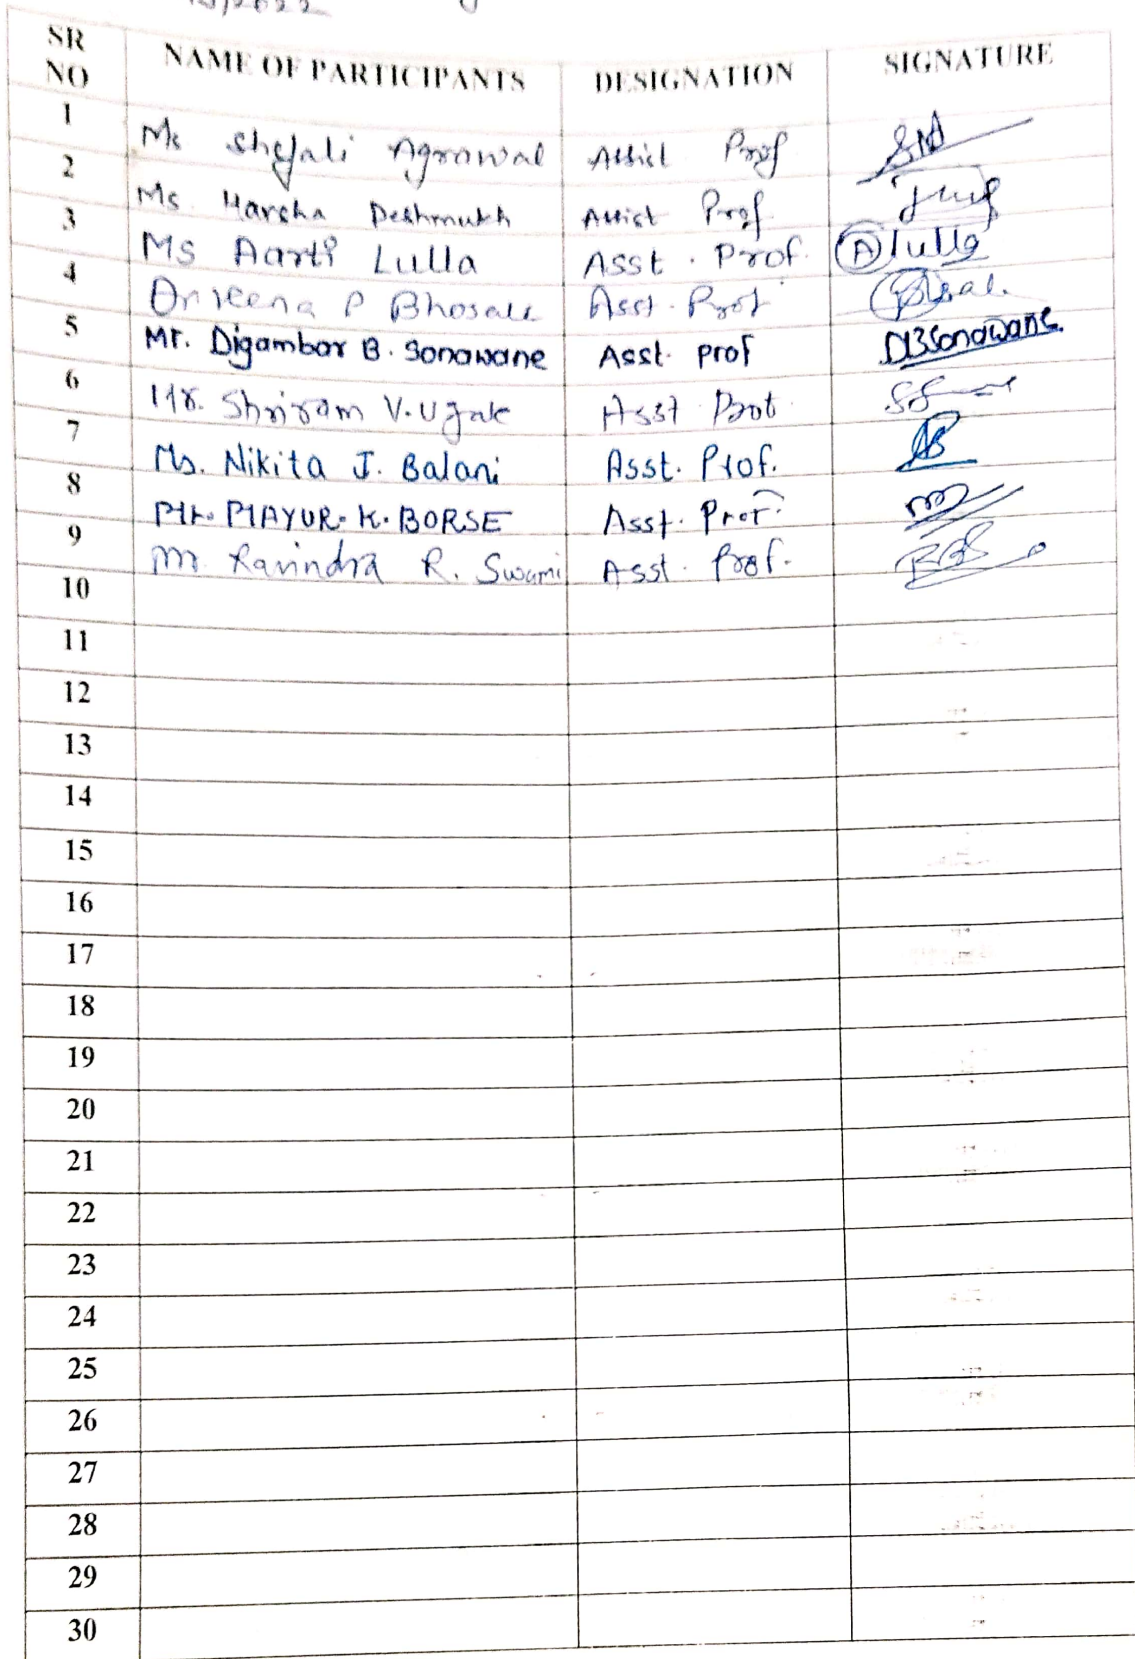 SR NO NAME OF PARTICIPANTS DESIGNATION SIGNATURE
1 Ms Shefali Agrawal Assist Prof
2 Ms. Harsha Deshmukh Assist Prof
3 Ms Aarti Lulla Asst. Prof. Alulla
4 Dr Veena P Bhosale Asst. Prof
5 Mr. Digambar B. Sonawane Asst. prof DBSonawane
6 Mr. Shriram V. Ugale Asst Prof.
7 Ms. Nikita J. Balani Asst. Prof.
8 Mr. MAYUR. K. BORSE Asst. Prof.
9 Mr. Ravindra R. Swami Asst. Prof.
10
11
12
13
14
15
16
17
18
19
20
21
22
23
24
25
26
27
28
29
30